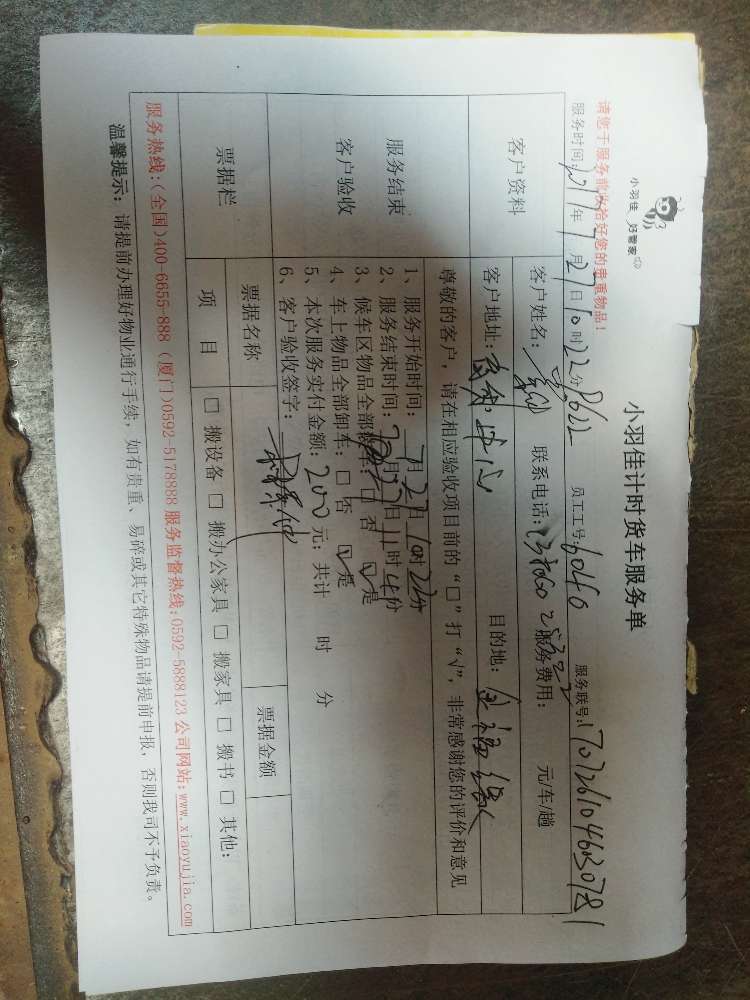 小羽佳 好管家
小羽佳计时货车服务单
请您于服务前收拾好您的贵重物品!
服务时间:2017年7月27日10时22分 员工工号:6040 服务联号:
客户资料
客户姓名: 联系电话: 服务费用: 元/车/趟
客户地址: 中心 目的地:
尊敬的客户,请在相应验收项目前的“□”打“√”,非常感谢您的评价和意见
服务结束
客户验收
1、服务开始时间:7月27日10时22分
2、服务结束时间:7月27日11时 分
3、候车区物品全部 车:□否 ☑是
4、车上物品全部卸车:□否 ☑是
5、本次服务实付金额:200元;共计 时 分
6、客户验收签字:
票据栏
票据名称 票据金额
项目 □搬设备 □搬办公家具 □搬家具 □搬书 □其他:
服务热线:(全国)400-6655-888 (厦门)0592-5178888 服务监督热线:0592-5888123 公司网站:www.xiaoyujia.com
温馨提示:请提前办理好物业通行手续,如有贵重、易碎或其它特殊物品请提前申报,否则我司不予负责。